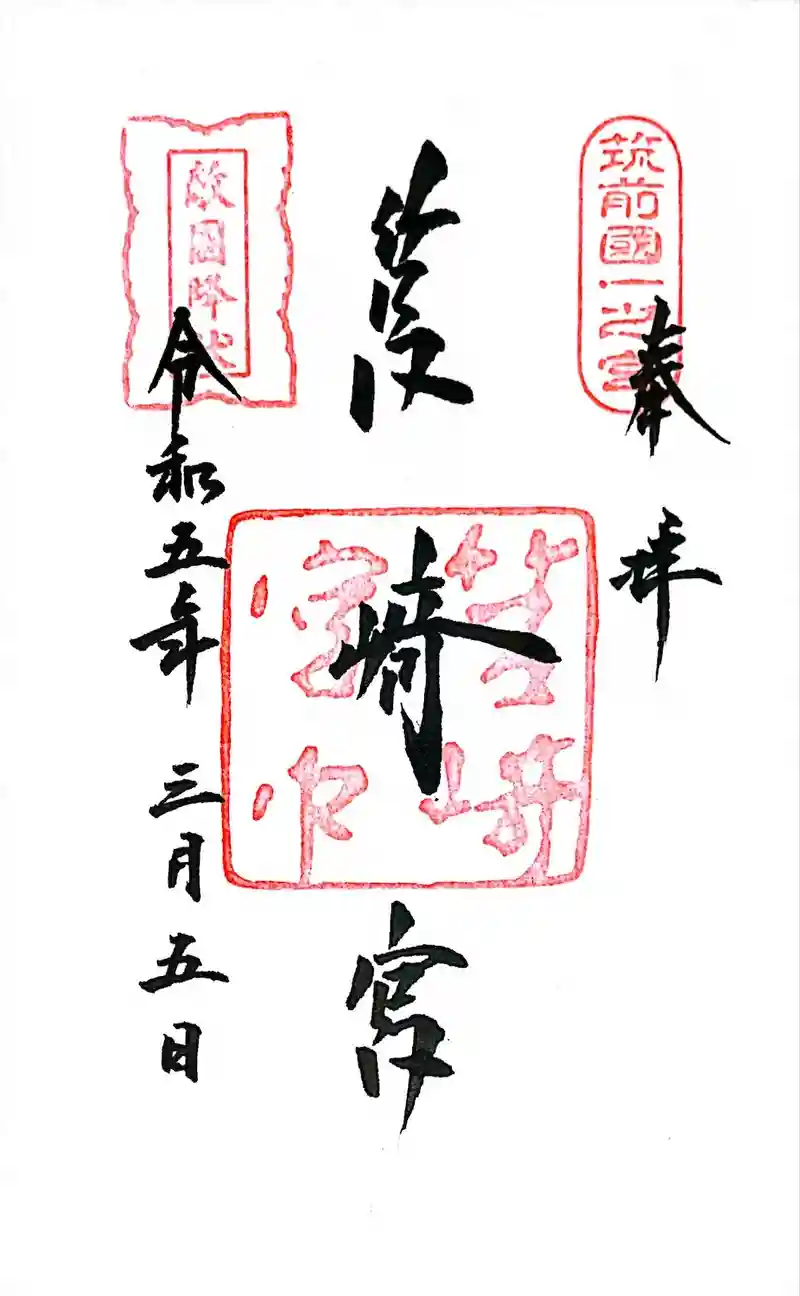 筑前國一之宮
奉拝
筥崎宮
筥崎
宮印
敵國降伏
令和五年 三月五日